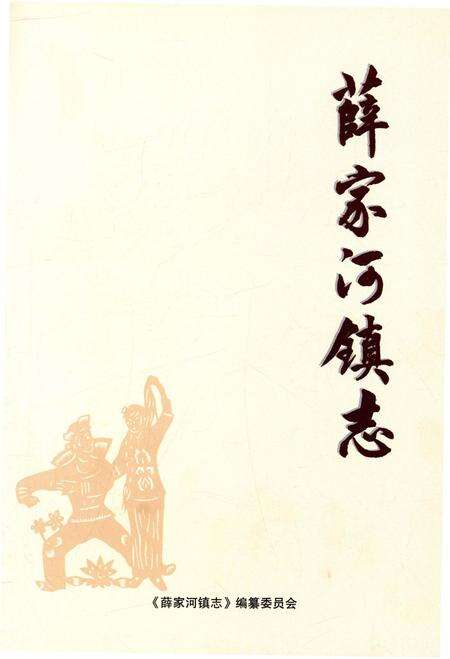 薛家河镇志
《薛家河镇志》编纂委员会